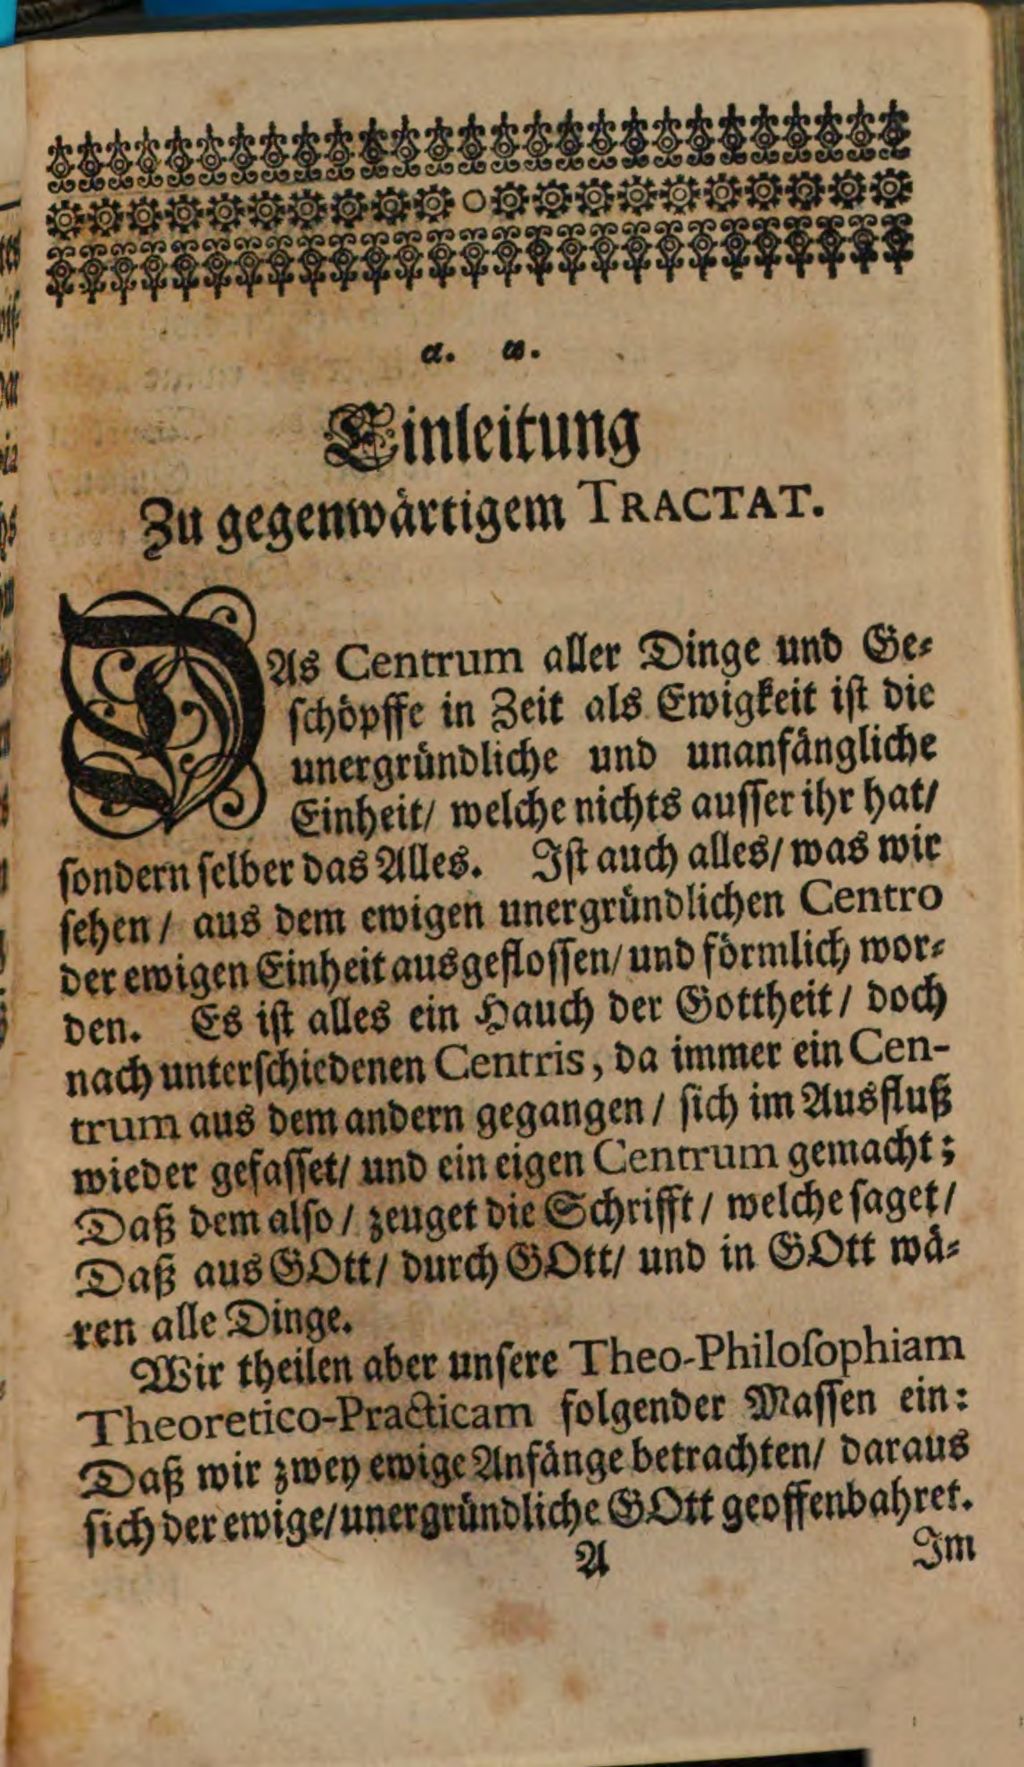 α. ω.
Einleitung
Zu gegenwärtigem TRACTAT.
DAs Centrum aller Dinge und Ge-
schöpffe in Zeit als Ewigkeit ist die
unergründliche und unanfängliche
Einheit/ welche nichts ausser ihr hat/
sondern selber das Alles. Ist auch alles/ was wir
sehen/ aus dem ewigen unergründlichen Centro
der ewigen Einheit ausgeflossen/ und förmlich wor-
den. Es ist alles ein Hauch der Gottheit/ doch
nach unterschiedenen Centris, da immer ein Cen-
trum aus dem andern gegangen/ sich im Ausfluß
wieder gefasset/ und ein eigen Centrum gemacht;
Daß dem also/ zeuget die Schrifft/ welche saget/
Daß aus GOtt/ durch GOtt/ und in GOtt wä-
ren alle Dinge.
Wir theilen aber unsere Theo-Philosophiam
Theoretico-Practicam folgender Massen ein:
Daß wir zwey ewige Anfänge betrachten/ daraus
sich der ewige/ unergründliche GOtt geoffenbahret.
A Im